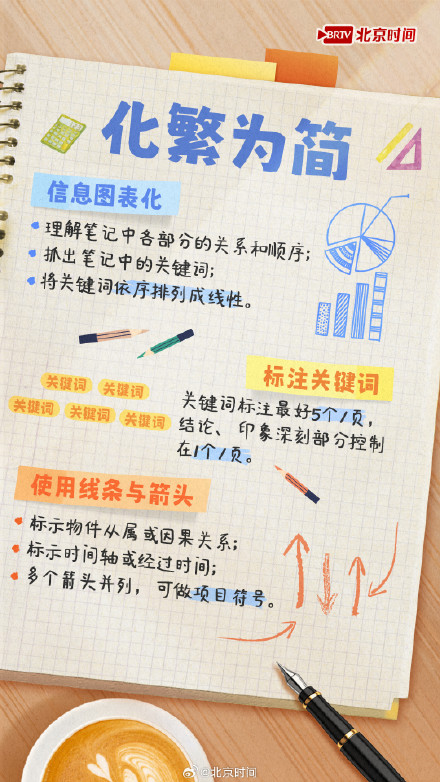 BRTV 北京时间
化繁为简
信息图表化
理解笔记中各部分的关系和顺序;
抓出笔记中的关键词;
将关键词依序排列成线性。
标注关键词
关键词 关键词
关键词 关键词 关键词
关键词标注最好5个/页,
结论、印象深刻部分控制
在1个/页。
使用线条与箭头
标示物件从属或因果关系;
标示时间轴或经过时间;
多个箭头并列,可做项目符号。
@北京时间